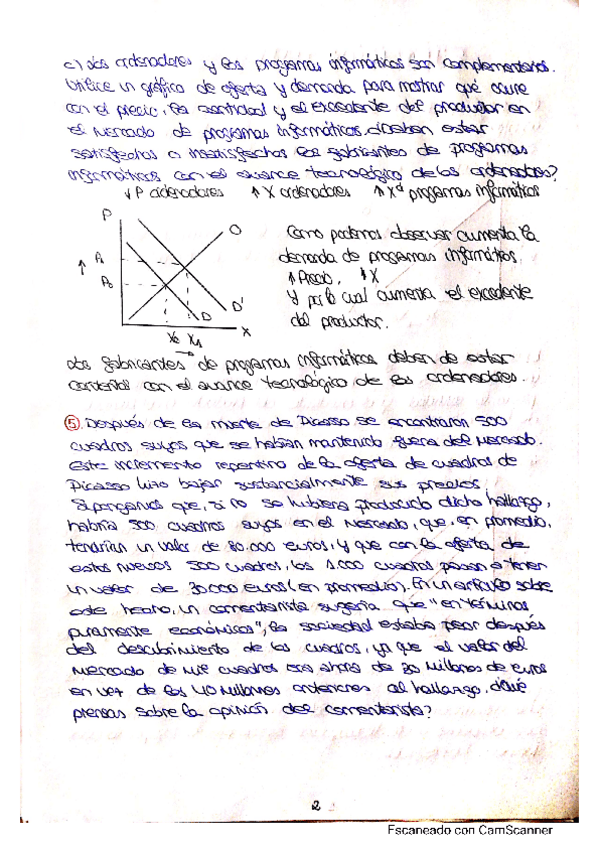 c) Los ordenadores y los programas informáticos son complementarios.
Utilice un gráfico de oferta y demanda para mostrar qué ocurre
con el precio, la cantidad y el excedente del productor en
el mercado de programas informáticos. ¿Deben estar
satisfechos o insatisfechos los fabricantes de programas
informáticos con el avance tecnológico de los ordenadores?
↓P ordenadores ↑X ordenadores ↑Xᵈ programas informáticos
P
O
P₁
↑
P₀
D'
D
X₀ X₁
→
X
Como podemos observar aumenta la
demanda de programas informáticos
↑Precio, ↑X
Y por lo cual aumenta el excedente
del productor.
Los fabricantes de programas informáticos deben de estar
contentos con el avance tecnológico de los ordenadores.
⑤ Después de la muerte de Picasso se encontraron 500
cuadros suyos que se habían mantenido fuera del mercado.
Este incremento repentino de la oferta de cuadros de
Picasso hizo bajar sustancialmente sus precios.
Supongamos que, si no se hubiera producido dicho hallazgo,
habría 500 cuadros suyos en el mercado, que, en promedio,
tendrían un valor de 80.000 euros, y que con la oferta de
estos nuevos 500 cuadros, los 1.000 cuadros pasan a tener
un valor de 30.000 euros (en promedio). En un artículo sobre
este hecho, un comentarista sugería que "en términos
puramente económicos", la sociedad estaba peor después
del descubrimiento de los cuadros, ya que el valor del
mercado de mil cuadros era ahora de 30 millones de euros
en vez de los 40 millones anteriores al hallazgo. ¿Qué
piensas sobre la opinión del comentarista?
2
Escaneado con CamScanner